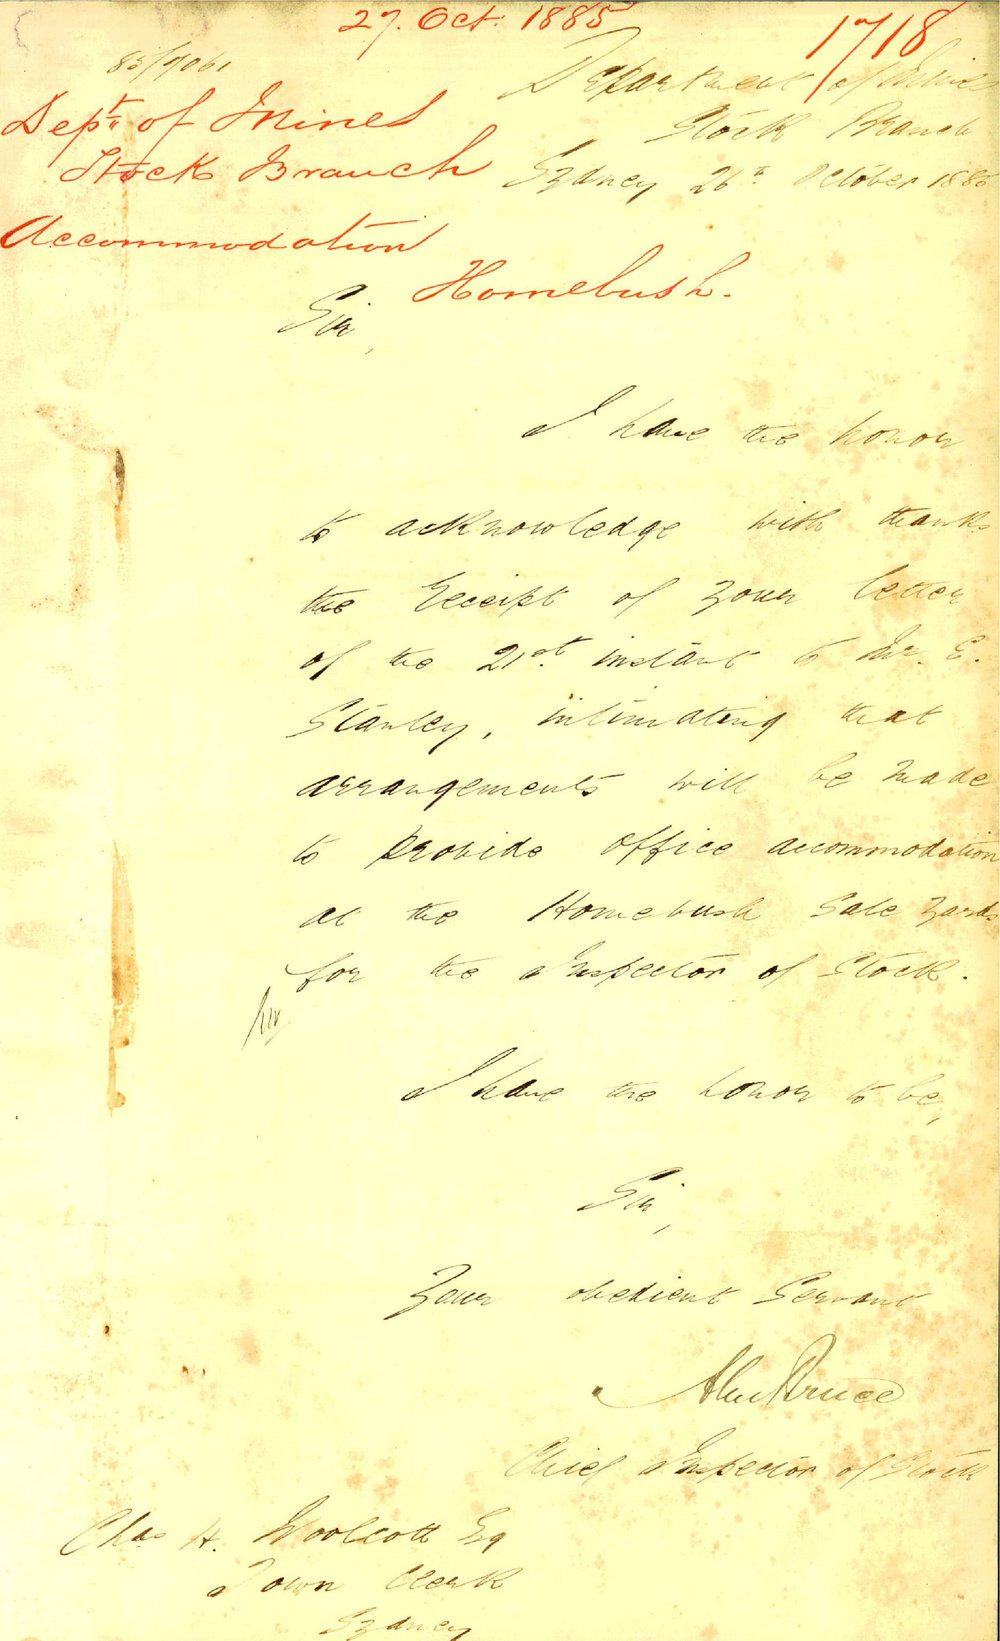 27. Oct. 1885
1718
85/7061
Department of Mines
Stock Branch
Sydney 26th October 1885
Deptt. of Mines
Stock Branch
Accommodation
Homebush.
Sir,
I have the honor
to acknowledge with thanks
the receipt of your letter
of the 21st. instant to Mr. E.
Stanley, intimating that
arrangements will be made
to provide office accommodation
at the Homebush Sale Yards
for the Inspector of Stock.
I have the honor to be,
Sir,
Your obedient Servant
Alex Bruce
Chief Inspector of Stock
Chas H. Woolcott Esq
Town Clerk
Sydney